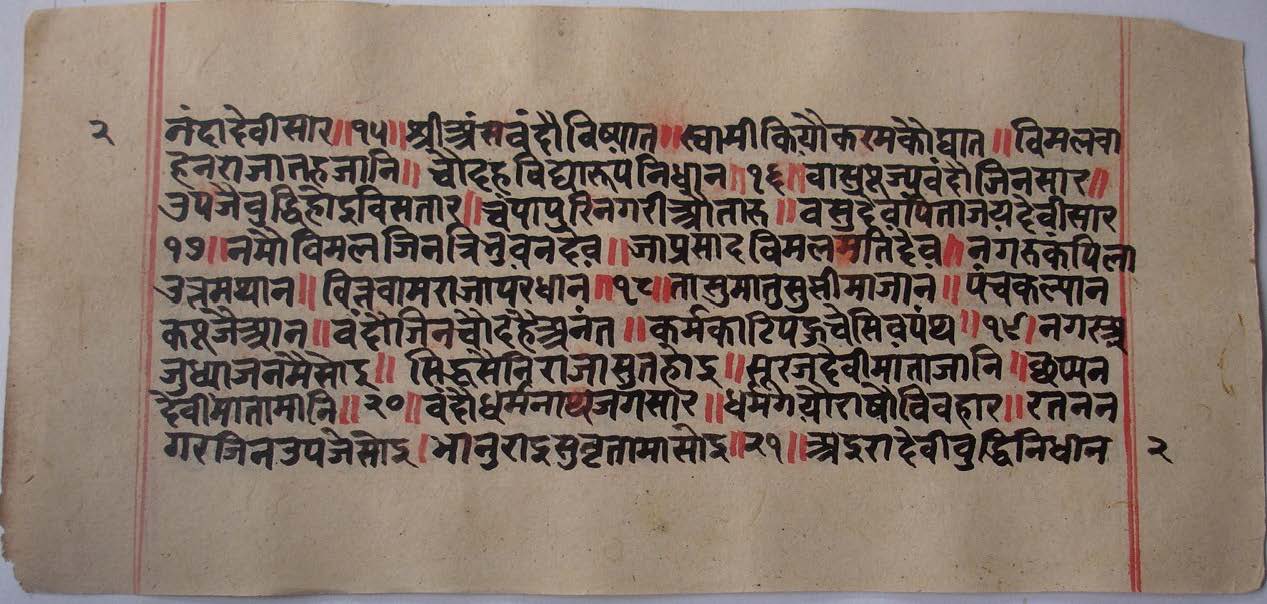 २ नंदादेवीसार॥१५॥श्रीअंसवंदौविष्यात॥स्वामीकियौकरमकौघात॥विमलवा
हनराजातहजानि॥चौदहविद्यारूपनिधान॥१६॥वासुःज्यवंदौजिनसार॥
उपजैवुद्धिहोइविसतार॥चंपापुरिनगरीऔतारु॥वसुदेवपिताजयदेवीसार
१७॥नमौविमलजिनत्रिभुवनदेव॥जाप्रसादविमलमतिदेव॥नगरुकपिला
उत्तमथान॥वित्तवामराजापरधान॥१८॥तासुमातुसुसीमाजान॥पंचकल्यान
कःजैआन॥वंदौजिनचौदहैअनंत॥कर्मकाटिपहुचेसिवपंथ॥१९॥नगरअ
जुध्याजनमैसोइ॥सिद्धसैनिराजासुतहोइ॥सूरजदेवीमाताजानि॥छप्पन
देवीमातामानि॥२०॥वंदौधर्मनाथजगसार॥धर्मगयौराषौविवहार॥रतनन
गरजिनउपजेसोइ।भानुराइसुवृतामासोइ॥२१॥अइरादेवीवुद्धिनिधीन २